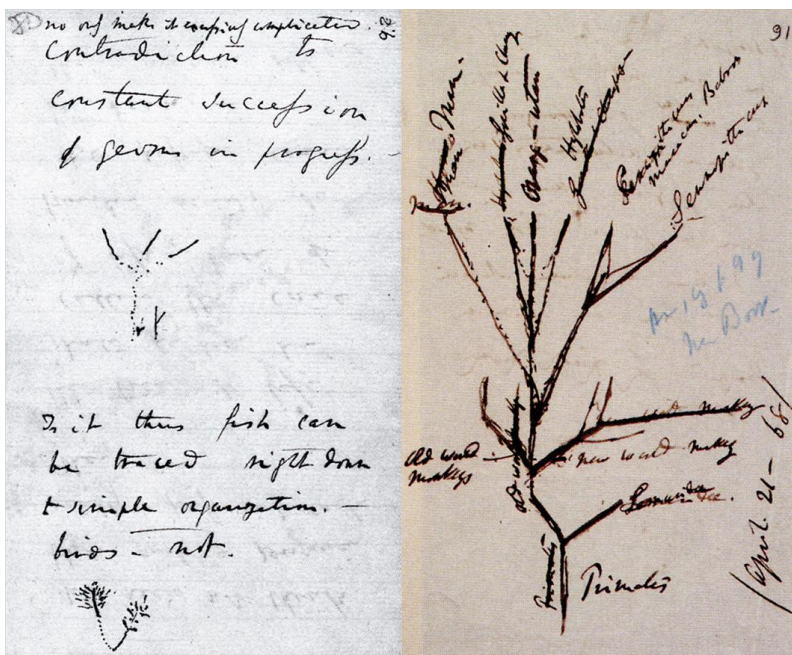 26
no only makes it excessively complicated.
Contradiction to
constant succession
of germs in progress.—
Is it thus fish can
be traced right down
to simple organization.—
birds – not.
91
Man.
Gorilla & Chimp
Orang-utan
Hylobates
Cercopithecus
Macacus. Baboons
Semnopithecus
Old world
monkeys
new world monkey
Lemuridae.
Primates
Primates
April 21 – 68